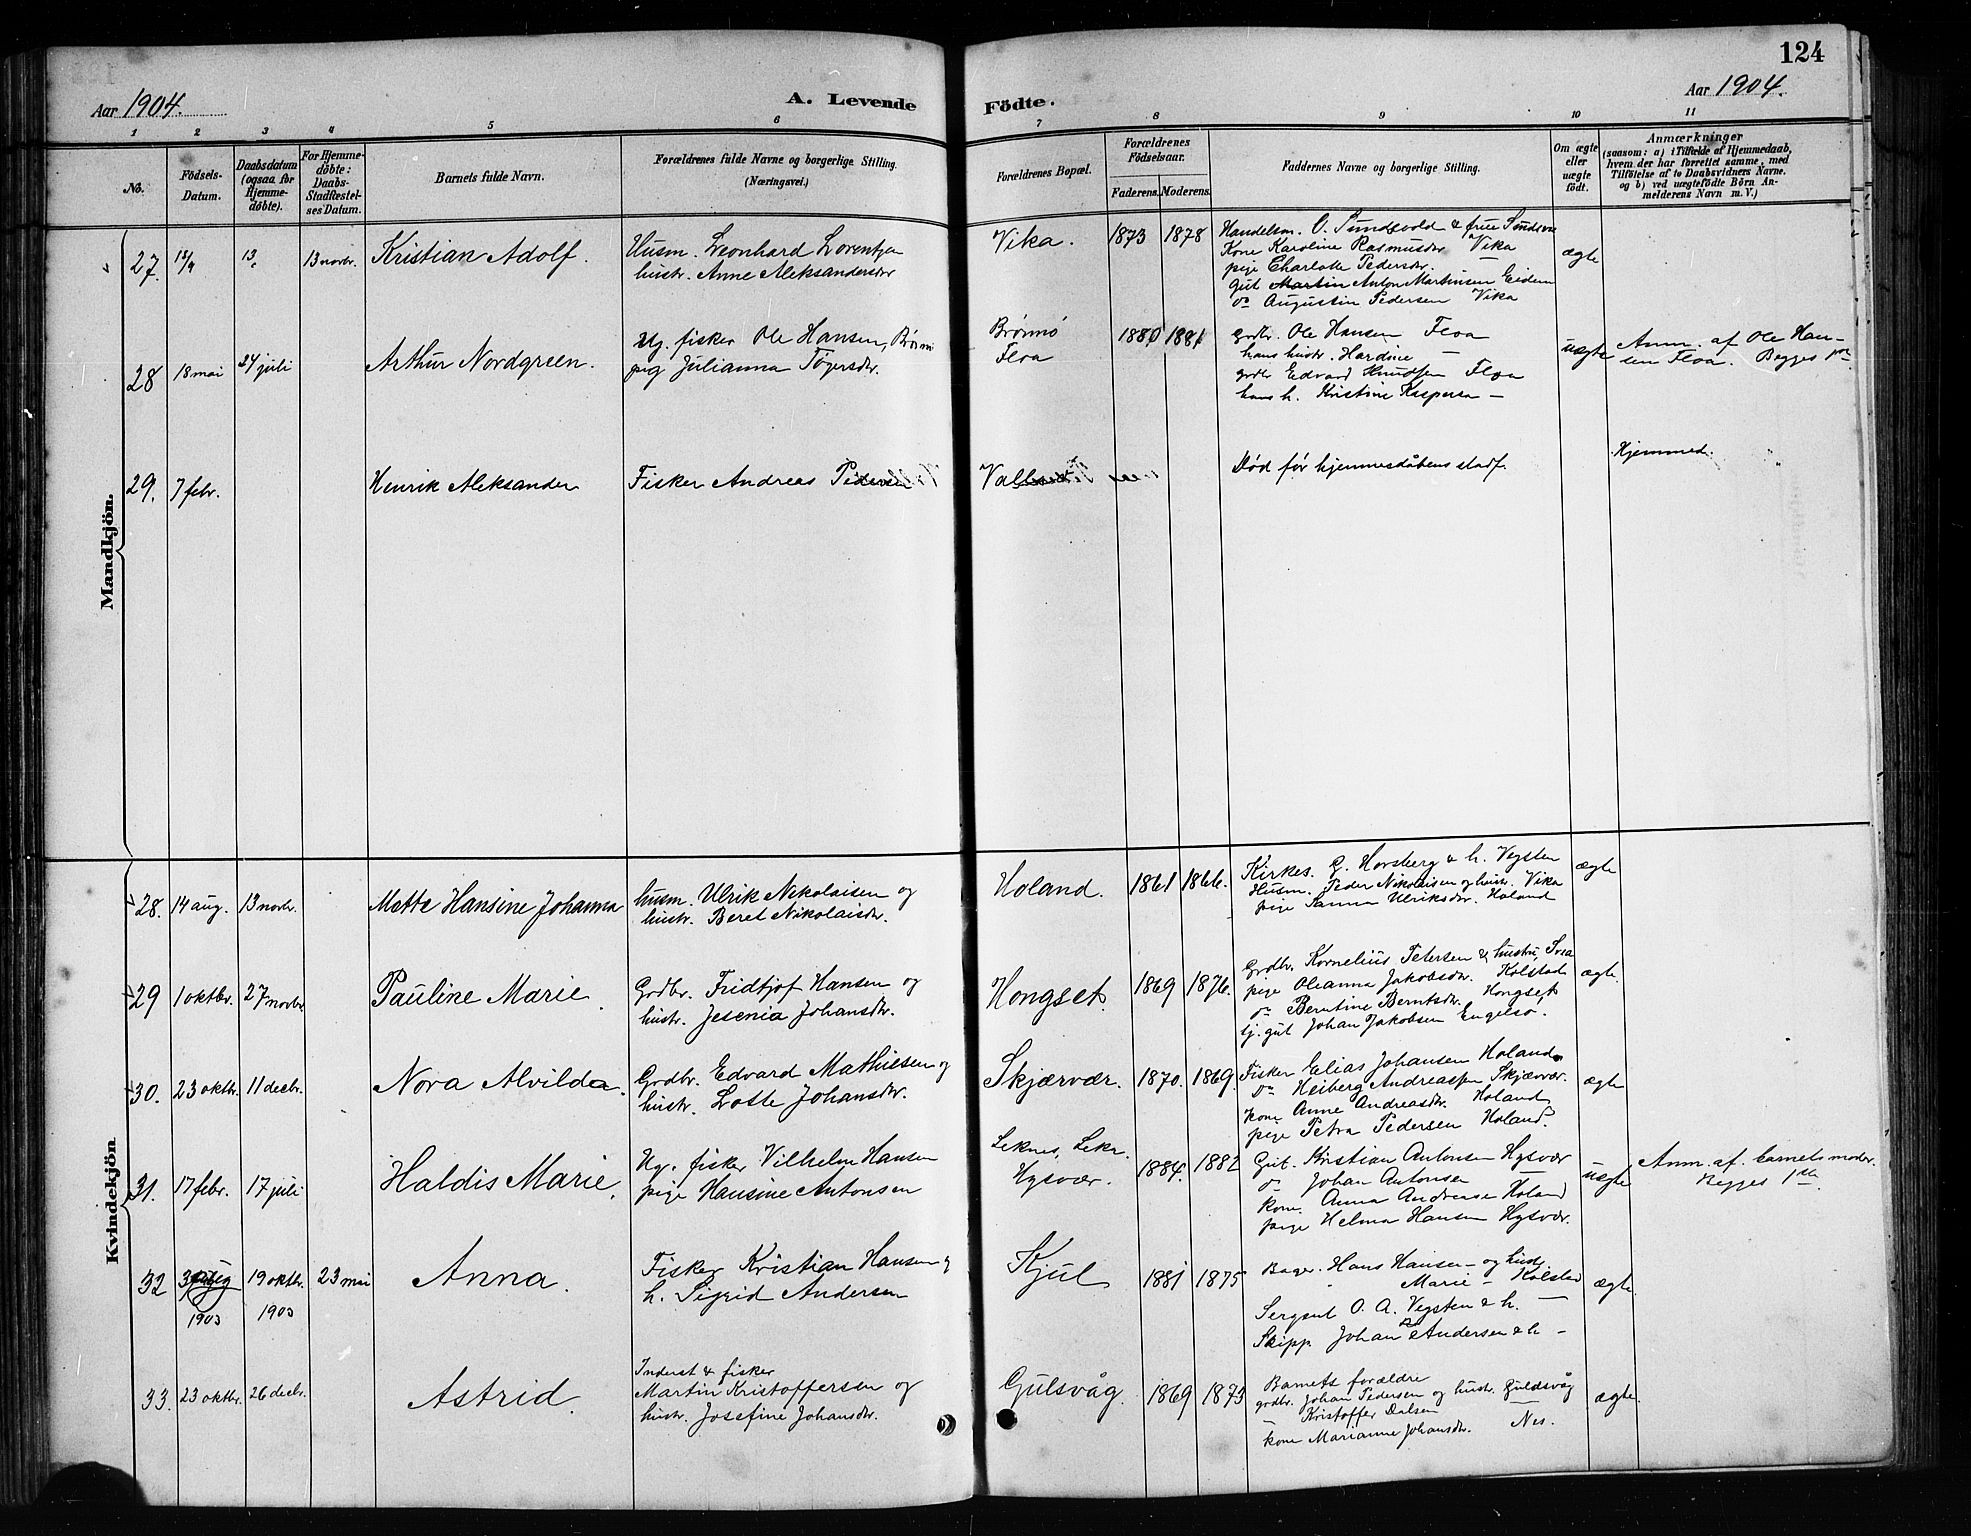 124
Aar 1904.
A. Levende
Födte.
Aar 1904.
1 2 3 4 5 6 7 8 9 10 11
No.
Födsels-
Datum.
Daabsdatum
(ogsaa for
Hjemme-
döbte).
For Hjemme-
döbte:
Daabs-
Stadfæstel-
ses Datum.
Barnets fulde Navn.
Forældrenes fulde Navne og borgerlige Stilling.
(Næringsvei.)
Forældrenes Bopæl.
Forældrenes
Födselsaar.
Faderens. Moderens.
Faddernes Navne og borgerlige Stilling.
Om ægte
eller
uægte
födt.
Anmærkninger
(saasom: a) i Tilfælde af Hjemmedaab,
hvem der har forrettet samme, med
Tilföielse af to Daabsvidners Navne.
og b) ved uægtefödte Börn An-
melderens Navn m. V.)
Mandkjön.
27. 13 13 novbr. Kristian Adolf.
Husm. Leonhard Lorentzen
hustr. Anne Aleksandersdr
Vika. 1873 1878
Handelsm. O. Sundsvold & frue
Kone Karoline Rasmusdr Vika
pige Charlotte Pedersdr.
Gut Martin Anton Martinsen Eidem
do Augustin Pedersen Vika
ægte
28 18 mai 24 juli Arthur Nordgreen.
Ug. fisker Ole Hansen, Brønnø
pig Julianna Tøgersdr.
Brønnø
Floa
1880 1881
Grdbr. Ole Hansen Floa
hans hustr. Hardine —
grdbr Edvard Knudsen Floa
hans h. Kristine Kaspersen —
uægte
Anm. af Ole Han-
sen Floa. Begges
29. 7 febr. Henrik Aleksander
Fisker Andreas Pedersen
Død før hjemmedåbens stadf.
Hjemmed.
Kvindekjön
28. 14 aug. 13 novbr. Mette Hansine Johanna
husm. Ulrik Nikolaisen og
hustr. Beret Nikolaisdr.
Holand. 1861 1866.
Kirkes. G. Horsberg & h. Vegsten
Husm. Peder Nikolaisen og hustr. Vika
pige Sanna Ulriksdr. Holand
ægte
29 1 oktbr. 27 novbr. Pauline Marie.
Grdbr. Fridtjof Hansen og
hustr. Jesenia Johansdr.
Hongset. 1869 1876.
Grdbr. Kornelius Petersen & hustru
pige Oleanna Jakobsdr. Kolstad
do Berntine Berntsdr. Hongset
tj. gut Johan Jakobsen Engelsø.
ægte
30. 23 oktbr. 11 decbr. Nora Alvilda.
Grdbr. Edvard Mathiesen og
hustr. Lotte Johansdr.
Skjærvær. 1870. 1869.
Fisker Elias Johansen Holand.
Do Heiberg Andreassen Skjærvær.
kone Anne Andreasdr. Holand
pige Petra Pedersen Holand.
ægte
31. 17 febr. 17 juli Haldis Marie.
Ug. fisker Vilhelm Hansen
pige Hansine Antonsen
Leknes, Leka.
Hysvær.
1884. 1882
Gut. Kristian Antonsen Hysvær
do Johan Antonsen —
kone. Anna Andreasen Holand
pige Helma Hansen Hysvær.
uægte
Anm. af. barnets moder.
Begges 1ste
32 1903 19 oktbr. 1903 23 mai Anna.
Fisker Kristian Hansen &
h. Sigrid Andersen
Kjul 1881 1875
Bager. Hans Hansen — og hustr.
Marie — Kolstad
Sergent O. A. Vegsten & h. —
Skipp. Johan Andersen & h —
ægte.
33. 23 oktbr. 26 decbr. Astrid.
Inderst & fisker
Martin Kristoffersen og
hustr. Josefine Johansdr.
Gulsvåg. 1869 1873
Barnets forældre
grdbr. Johan Pedersen og hustr. Guldsvåg
Kristoffer Dalsen —
kone Marianne Johansdr. Nes.
ægte.